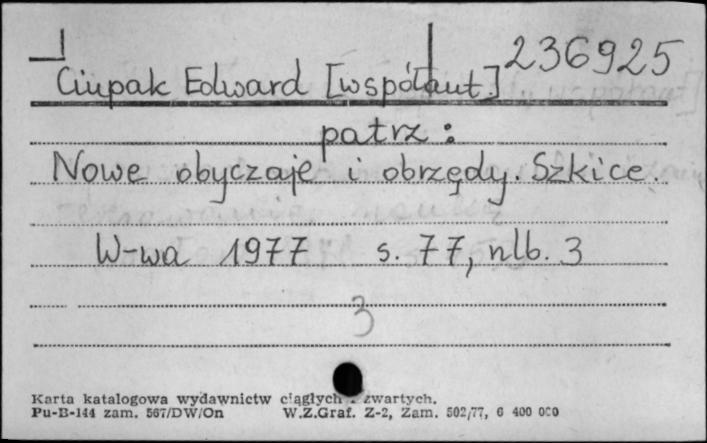 236925
Ciupak Edward [współaut.]
patrz:
Nowe obyczaje i obrzędy. Szkice.
W-wa 1977 s. 77, nlb. 3
3
Karta katalogowa wydawnictw ciągłych i zwartych.
Pu-B-144 zam. 567/DW/On W.Z.Graf. Z-2, Zam. 502/77, 6 400 000